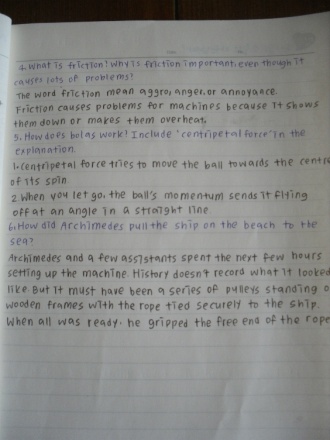 4. What is friction? Why is friction important, even though it
causes lots of problems?
The word friction mean aggro, anger, or annoyance.
Friction causes problems for machines because it slows
them down or makes them overheat.
5. How does bolas work? Include 'centripetal force' in the
explanation.
1. Centripetal force tries to move the ball towards the centre
of its spin
2. When you let go, the ball's momentum sends it flying
off at an angle in a straight line.
6. How did Archimedes pull the ship on the beach to the
sea?
Archimedes and a few assistants spent the next few hours
setting up the machine. History doesn't record what it looked
like. But it must have been a series of pulleys standing o
wooden frames with the rope tied securely to the ship.
When all was ready, he gripped the free end of the rope